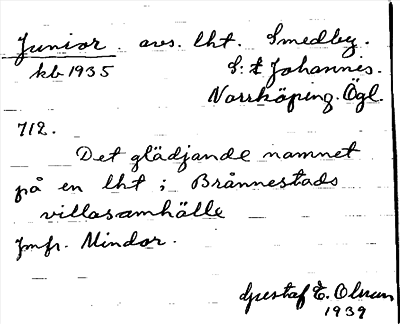 Junior. avs. lht. Smedby.
kb 1935 S:t Johannis.
Norrköping. Ögl.
712.
Det glädjande namnet
på en lht i Brånnestads
villasamhälle
Jmfr. Mindor.
Gustaf E. Olsson
1939